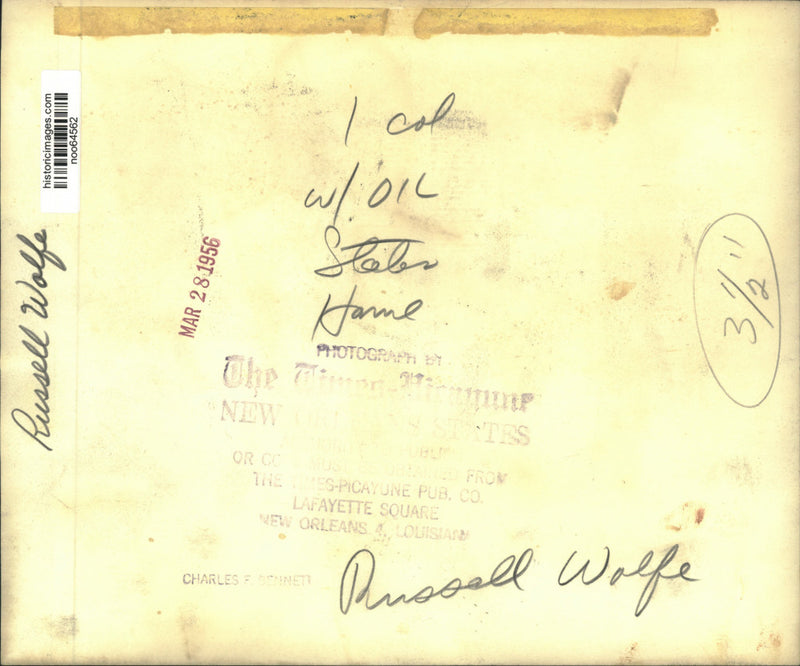 historicimages.com
noo64562
Russell Wolfe
1 col
w/ OIL
States
MAR 28 1956
3 1/2"
PHOTOGRAPH BY
The Times-Picayune
NEW ORLEANS STATES
OR
MUST
FROM
THE TIMES-PICAYUNE PUB. CO.
LAFAYETTE SQUARE
NEW ORLEANS 4, LOUISIANA
CHARLES F. BENNETT
Russell Wolfe